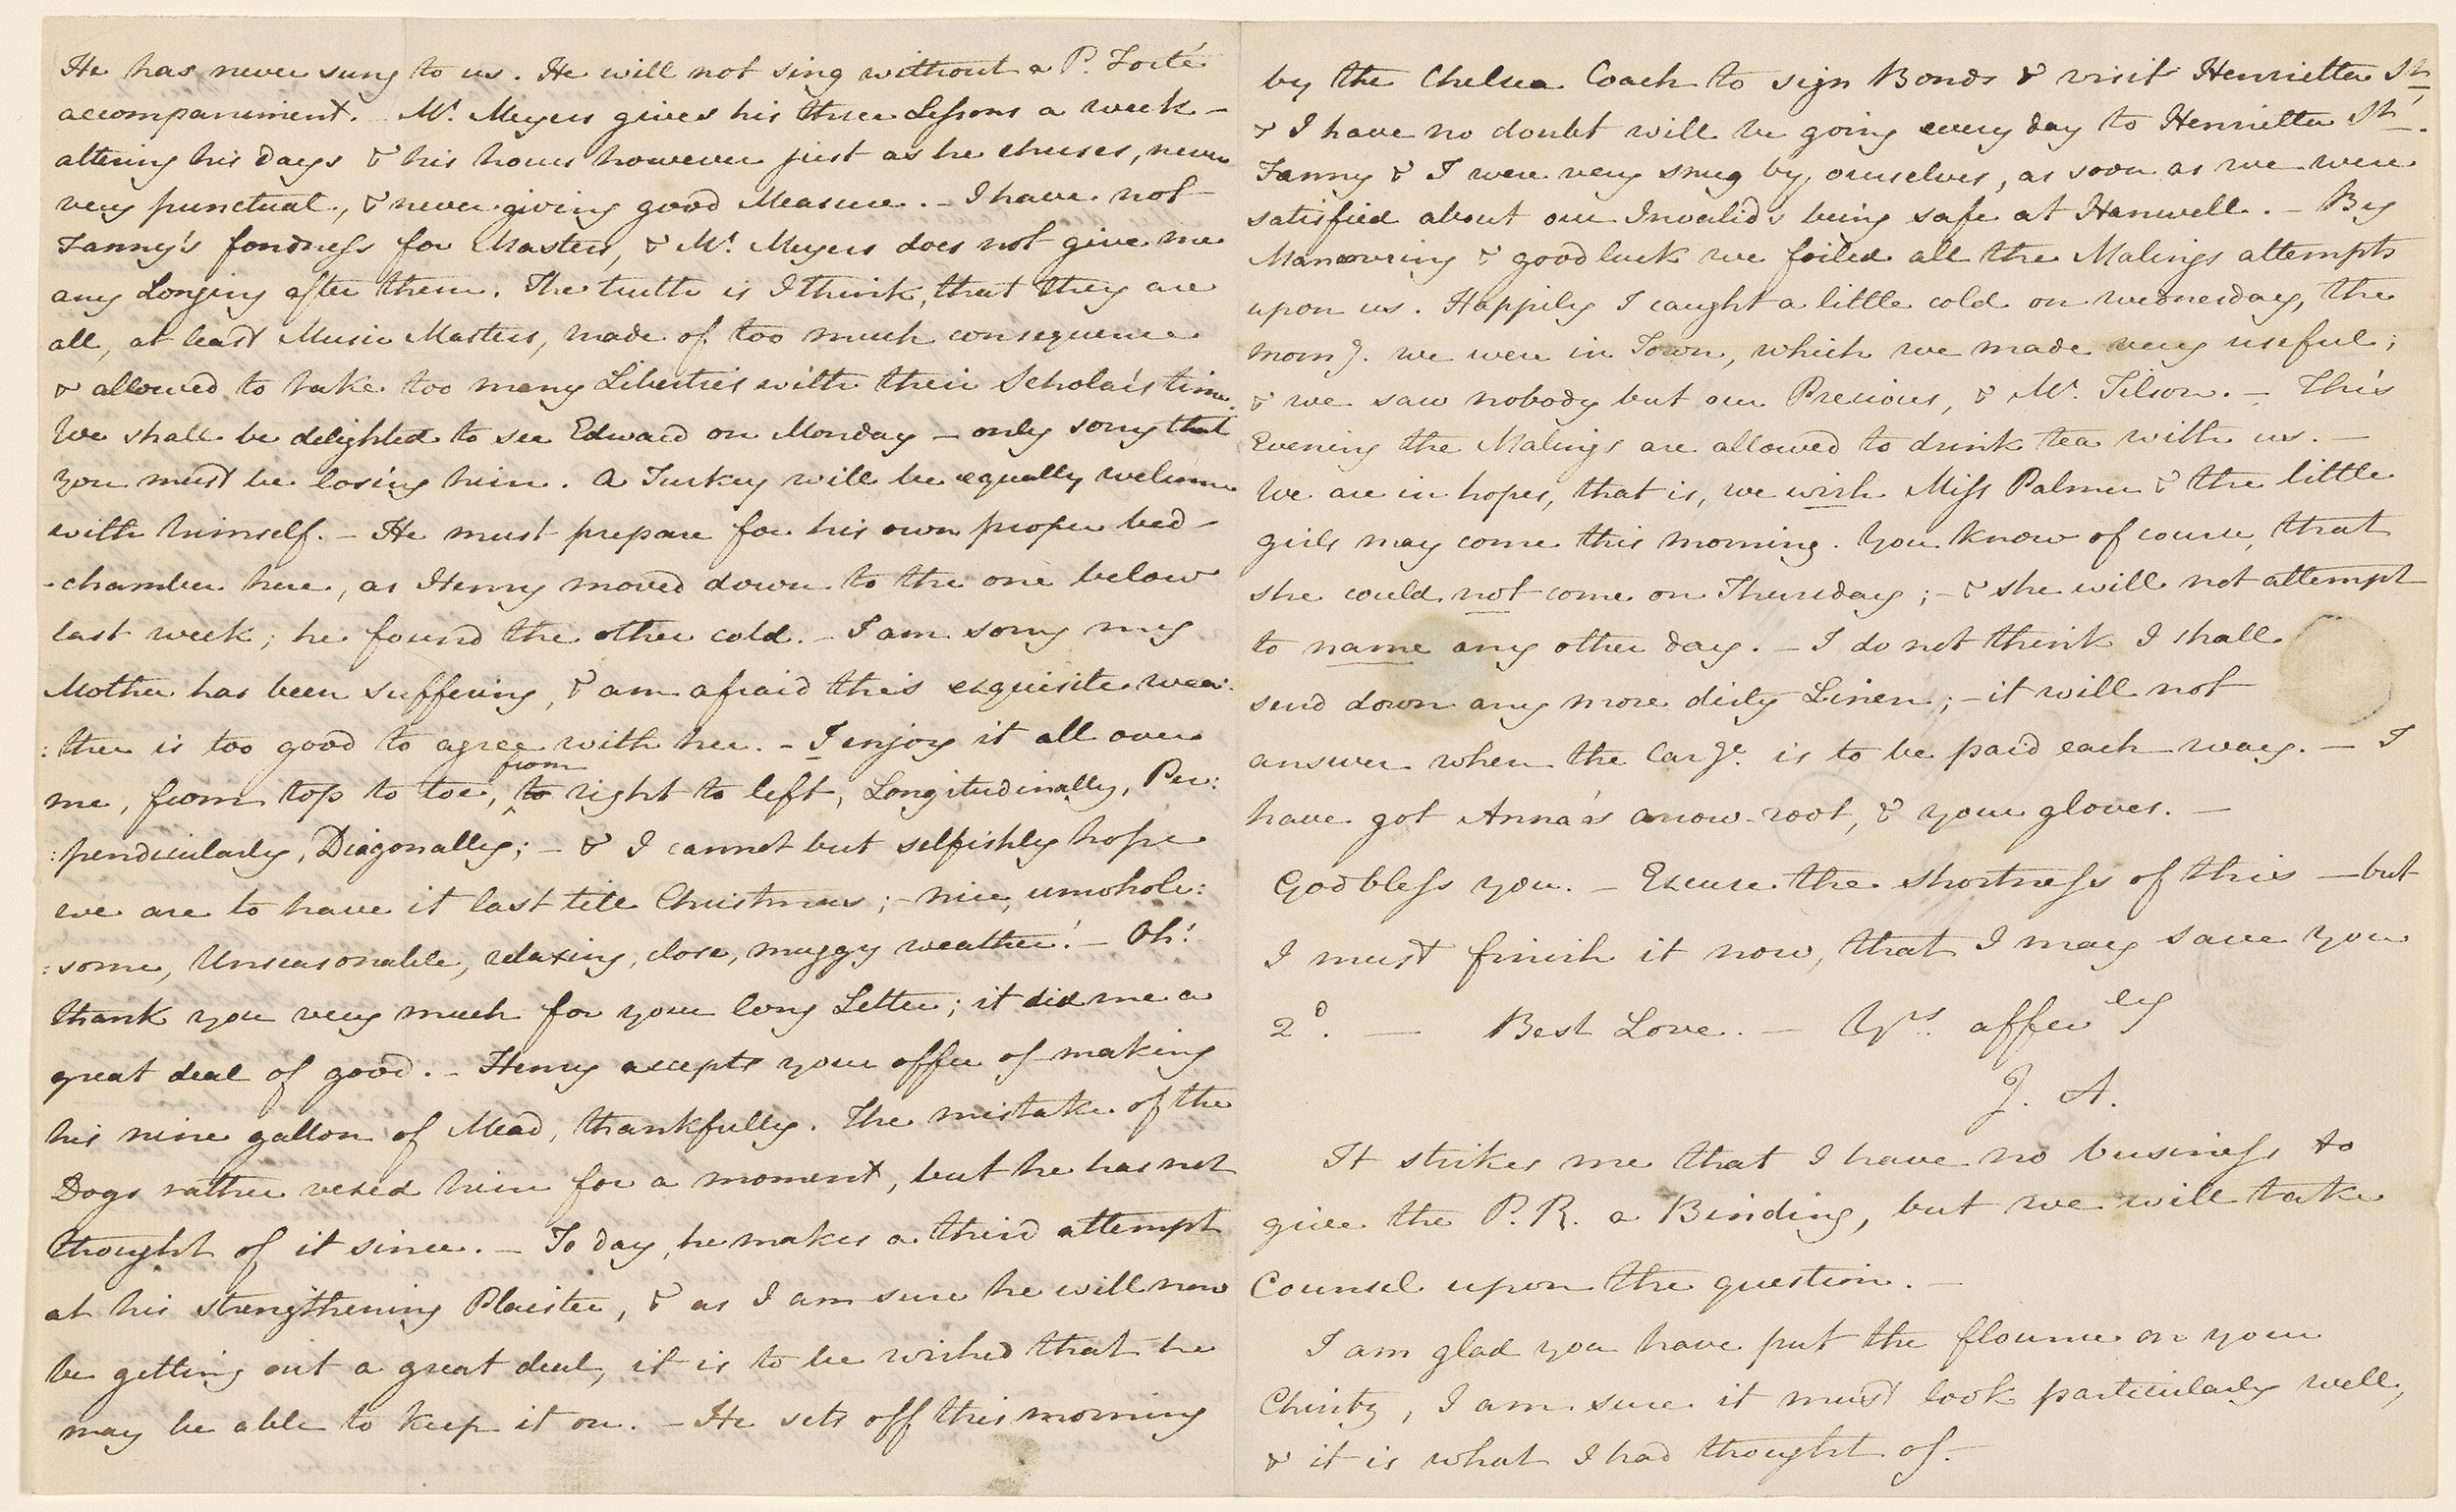 He has never sung to us. He will not sing without a P. Forté
accompaniment. Mr. Meyers gives his three Lessons a week –
altering his days & his hours however just as he chuses, never
very punctual, & never giving good Measure. – I have not
Fanny's fondness for Masters, & Mr. Meyers does not give me
any Longing after them. The truth is I think, that they are
all, at least Music Masters, made of too much consequence
& allowed to take too many Liberties with their Scholar's time.
We shall be delighted to see Edward on Monday – only sorry that
you must be losing him. A Turkey will be equally welcome
with himself. – He must prepare for his own proper bed-
-chamber here, as Henry moved down to the one below
last week; he found the other cold. – I am sorry my
Mother has been suffering, & am afraid this exquisite wea:
:ther is too good to agree with her. – I enjoy it all over
me, from top to toe, from to right to left, Longitudinally, Per:
:pendicularly, Diagonally; – & I cannot but selfishly hope
we are to have it last till Christmas; – nice, unwhole:
:some, Unseasonable, relaxing, close, muggy weather! – Oh!
thank you very much for your long Letter; it did me a
great deal of good. – Henry accepts your offer of making
his nine gallon of Mead, thankfully. The mistake of the
Dogs rather vexed him for a moment, but he has not
thought of it since. – To day, he makes a third attempt
at his strengthening Plaister, & as I am sure he will now
be getting out a great deal, it is to be wished that he
may be able to keep it on. – He sets off this morning
by the Chelsea Coach to sign Bonds & visit Henrietta St.
& I have no doubt will be going every day to Henrietta St.
Fanny & I were very snug by ourselves, as soon as we were
satisfied about our Invalid's being safe at Hanwell. – By
Manoeuvring & good luck we foiled all the Malings attempts
upon us. Happily I caught a little cold on wednesday, the
morng. we were in Town, which we made very useful;
& we saw nobody but our Precious, & Mr. Tilson. – This
Evening the Malings are allowed to drink tea with us. –
We are in hopes, that is, we wish Miss Palmer & the little
girls may come this morning. You know of course, that
she could not come on Thursday; – & she will not attempt
to name any other day. – I do not think I shall
send down any more dirty Linen; – it will not
answer when the Carge. is to be paid each way. – I
have got Anna's arrow-root, & your gloves. –
God bless you. – Excuse the shortness of this – but
I must finish it now, that I may save you
2d. – Best Love. – Yrs. affecly
J. A.
It strikes me that I have no business to
give the P. R. a Binding, but we will take
Counsel upon the question. –
I am glad you have put the flounce on your
Chintz, I am sure it must look particularly well,
& it is what I had thought of –